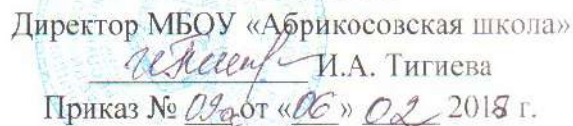 Директор МБОУ «Абрикосовская школа»
И.А. Тигиева
Приказ № 09а от «06» 02 2018 г.